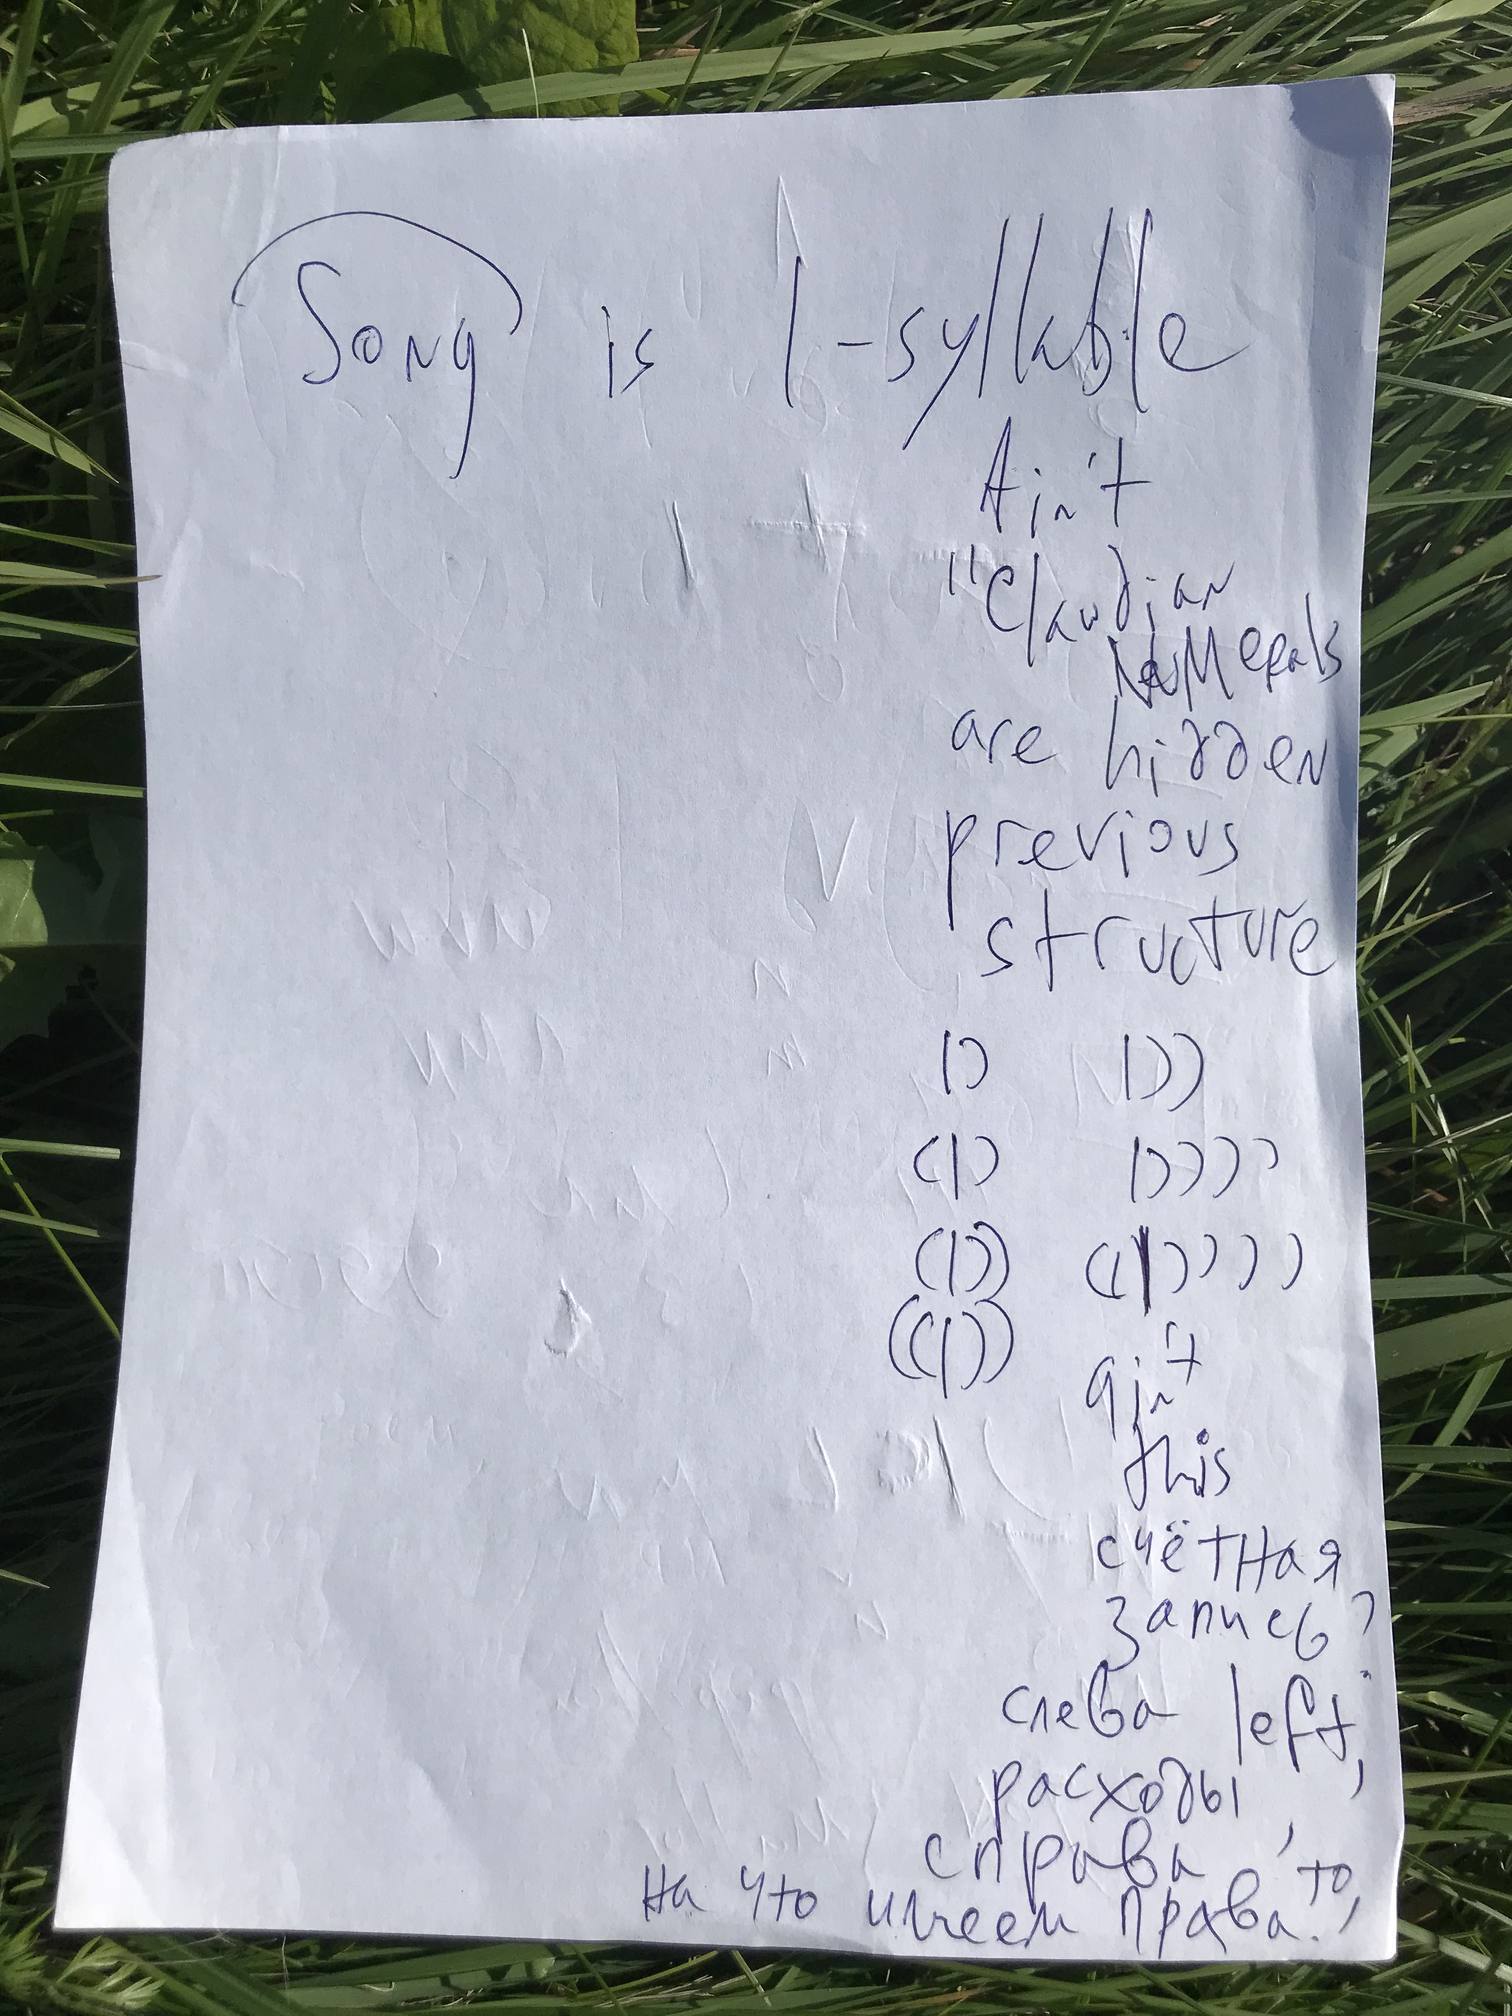 Song is 1-syllable
Ain't
"Claudian
NuMerals
are hidden
previous
structure
|) |))
(|) |))))
((|)) ((|)))))
(((|)))
ain't
this
счётная
запись?
слева left;
расходы,
справа то,
на что имеем права.